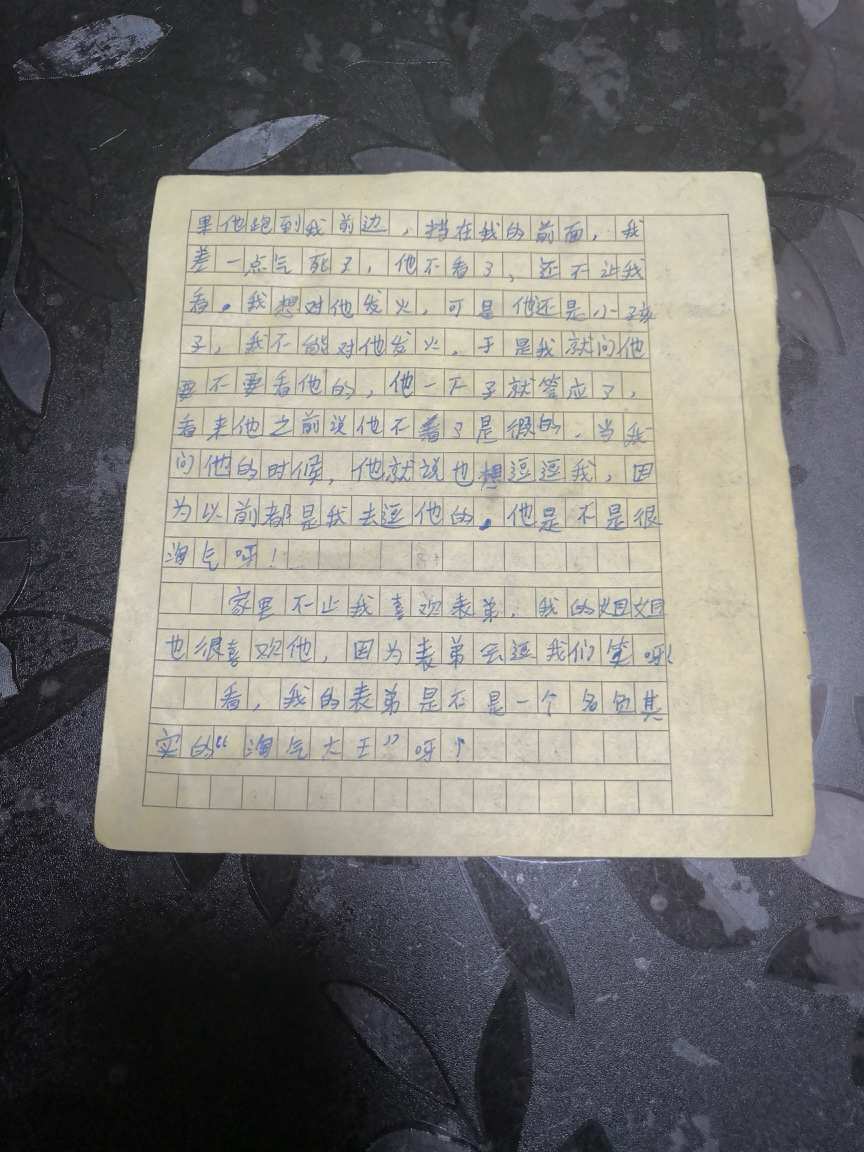 果他跑到我前边，挡在我的前面，我
差一点气死了，他不看了，还不让我
看。我想对他发火，可是他还是小孩
子，我不能对他发火。于是我就问他
要不要看他的，他一下子就答应了，
看来他之前说他不看了是假的。当我
问他的时候，他就说也想逗逗我，因
为以前都是我去逗他的。他是不是很
淘气呀！
家里不止我喜欢表弟，我的姐姐
也很喜欢他，因为表弟会逗我们笑呀！
看，我的表弟是不是一个名负其
实的“淘气大王”呀！